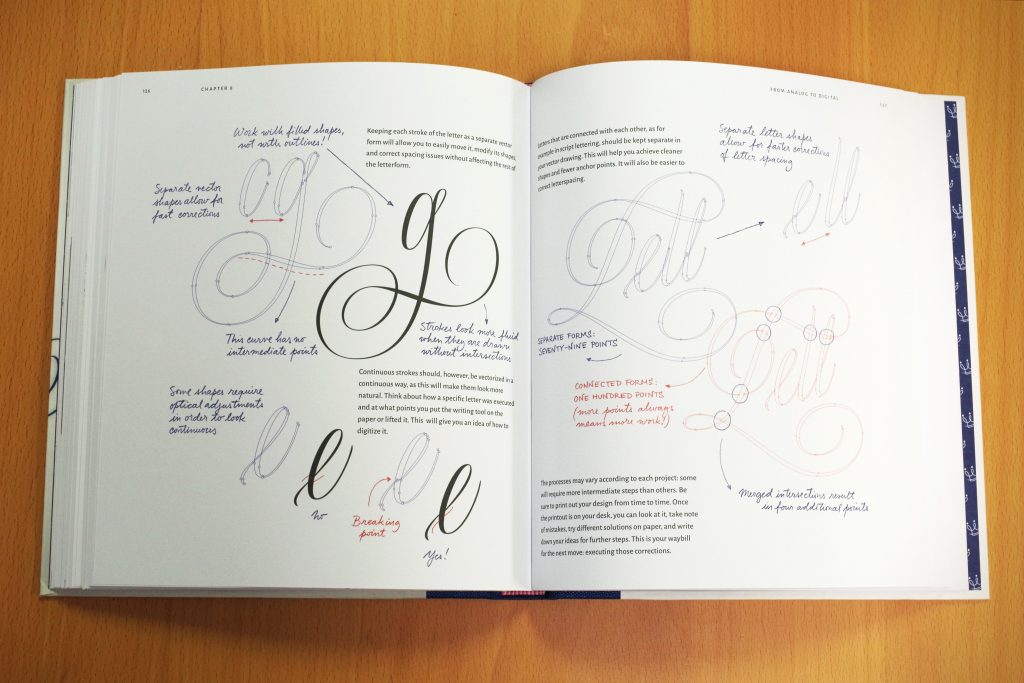 CHAPTER
Work with filled shapes,
not with outlines!
Separate vector
shapes allow for
fast corrections
Keeping each stroke of the letter as a separate vector
form will allow you to easily move it, modify its shapes,
and correct spacing issues without affecting the rest of
the letterform.
g
g
This curve has no
intermediate points
Strokes look more fluid
when they are drawn
without intersections
Continuous strokes should, however, be vectorized in a
continuous way, as this will make them look more
natural. Think about how a specific letter was executed
and at what points you put the writing tool on the
paper or lifted it. This will give you an idea of how to
digitize it.
Some shapes require
optical adjustments
in order to look
continuous
l
l
no
Breaking
point
l
l
Yes!
FROM ANALOG TO DIGITAL
Letters that are connected with each other, as for
example in script lettering, should be kept separate in
your vector drawing. This will help you achieve cleaner
shapes and fewer anchor points. It will also be easier to
correct letterspacing.
Separate letter shapes
allow for faster corrections
of letter spacing
Dell
ell
SEPARATE FORMS:
SEVENTY-NINE POINTS
CONNECTED FORMS:
ONE HUNDRED POINTS
(more points always
means more work!)
Dell
Merged intersections result
in four additional points
The processes may vary according to each project: some
will require more intermediate steps than others. Be
sure to print out your design from time to time. Once
the printout is on your desk, you can look at it, take note
of mistakes, try different solutions on paper, and write
down your ideas for further steps. This is your waybill
for the next move: executing those corrections.